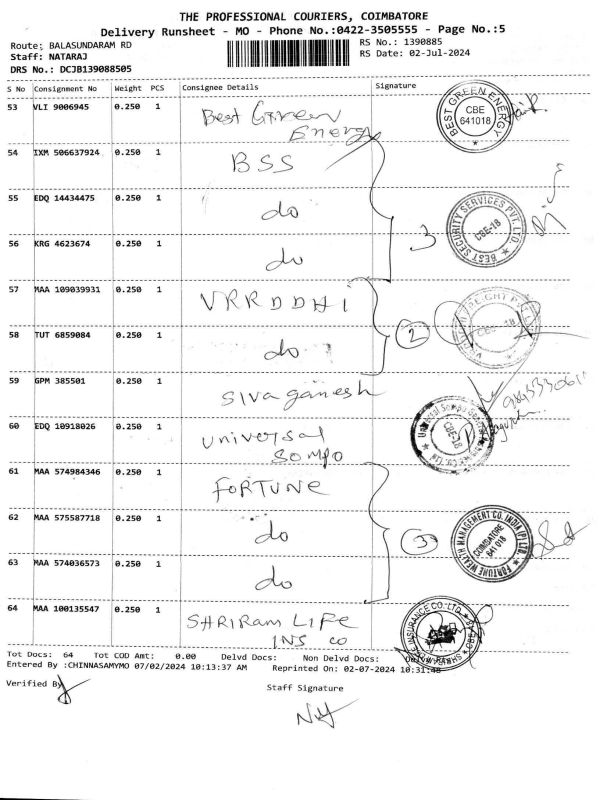 THE PROFESSIONAL COURIERS, COIMBATORE
Delivery Runsheet - MO - Phone No.:0422-3505555 - Page No.:5
Route; BALASUNDARAM RD
RS No.: 1390885
Staff: NATARAJ
RS Date: 02-Jul-2024
DRS No.: DCJB139088505
S No Consignment No Weight PCS Consignee Details Signature
53 VLI 9006945 0.250 1 Best Green Energy
BEST GREEN ENERGY
CBE
641018
54 IXM 506637924 0.250 1 BSS
55 EDQ 14434475 0.250 1 do
3
BEST SECURITY SERVICES PVT. LTD.
CBE-18
56 KRG 4623674 0.250 1 do
57 MAA 109039931 0.250 1 VRRDDHI
58 TUT 6859084 0.250 1 do
2
CBE-18
59 GPM 385501 0.250 1 Siva ganesh
60 EDQ 10918026 0.250 1 universal Sompo
Universal Sompo
CBE-18
61 MAA 574984346 0.250 1 FORTUNE
62 MAA 575587718 0.250 1 do
3
FORTUNE WEALTH MANAGEMENT CO. INDIA (P) LTD.
COIMBATORE
641 018
63 MAA 574036573 0.250 1 do
64 MAA 100135547 0.250 1 SHRIRAM LIFE INS CO
Tot Docs: 64 Tot COD Amt: 0.00 Delvd Docs: Non Delvd Docs:
Entered By :CHINNASAMYMO 07/02/2024 10:13:37 AM Reprinted On: 02-07-2024 10:31:48
Verified By
Staff Signature